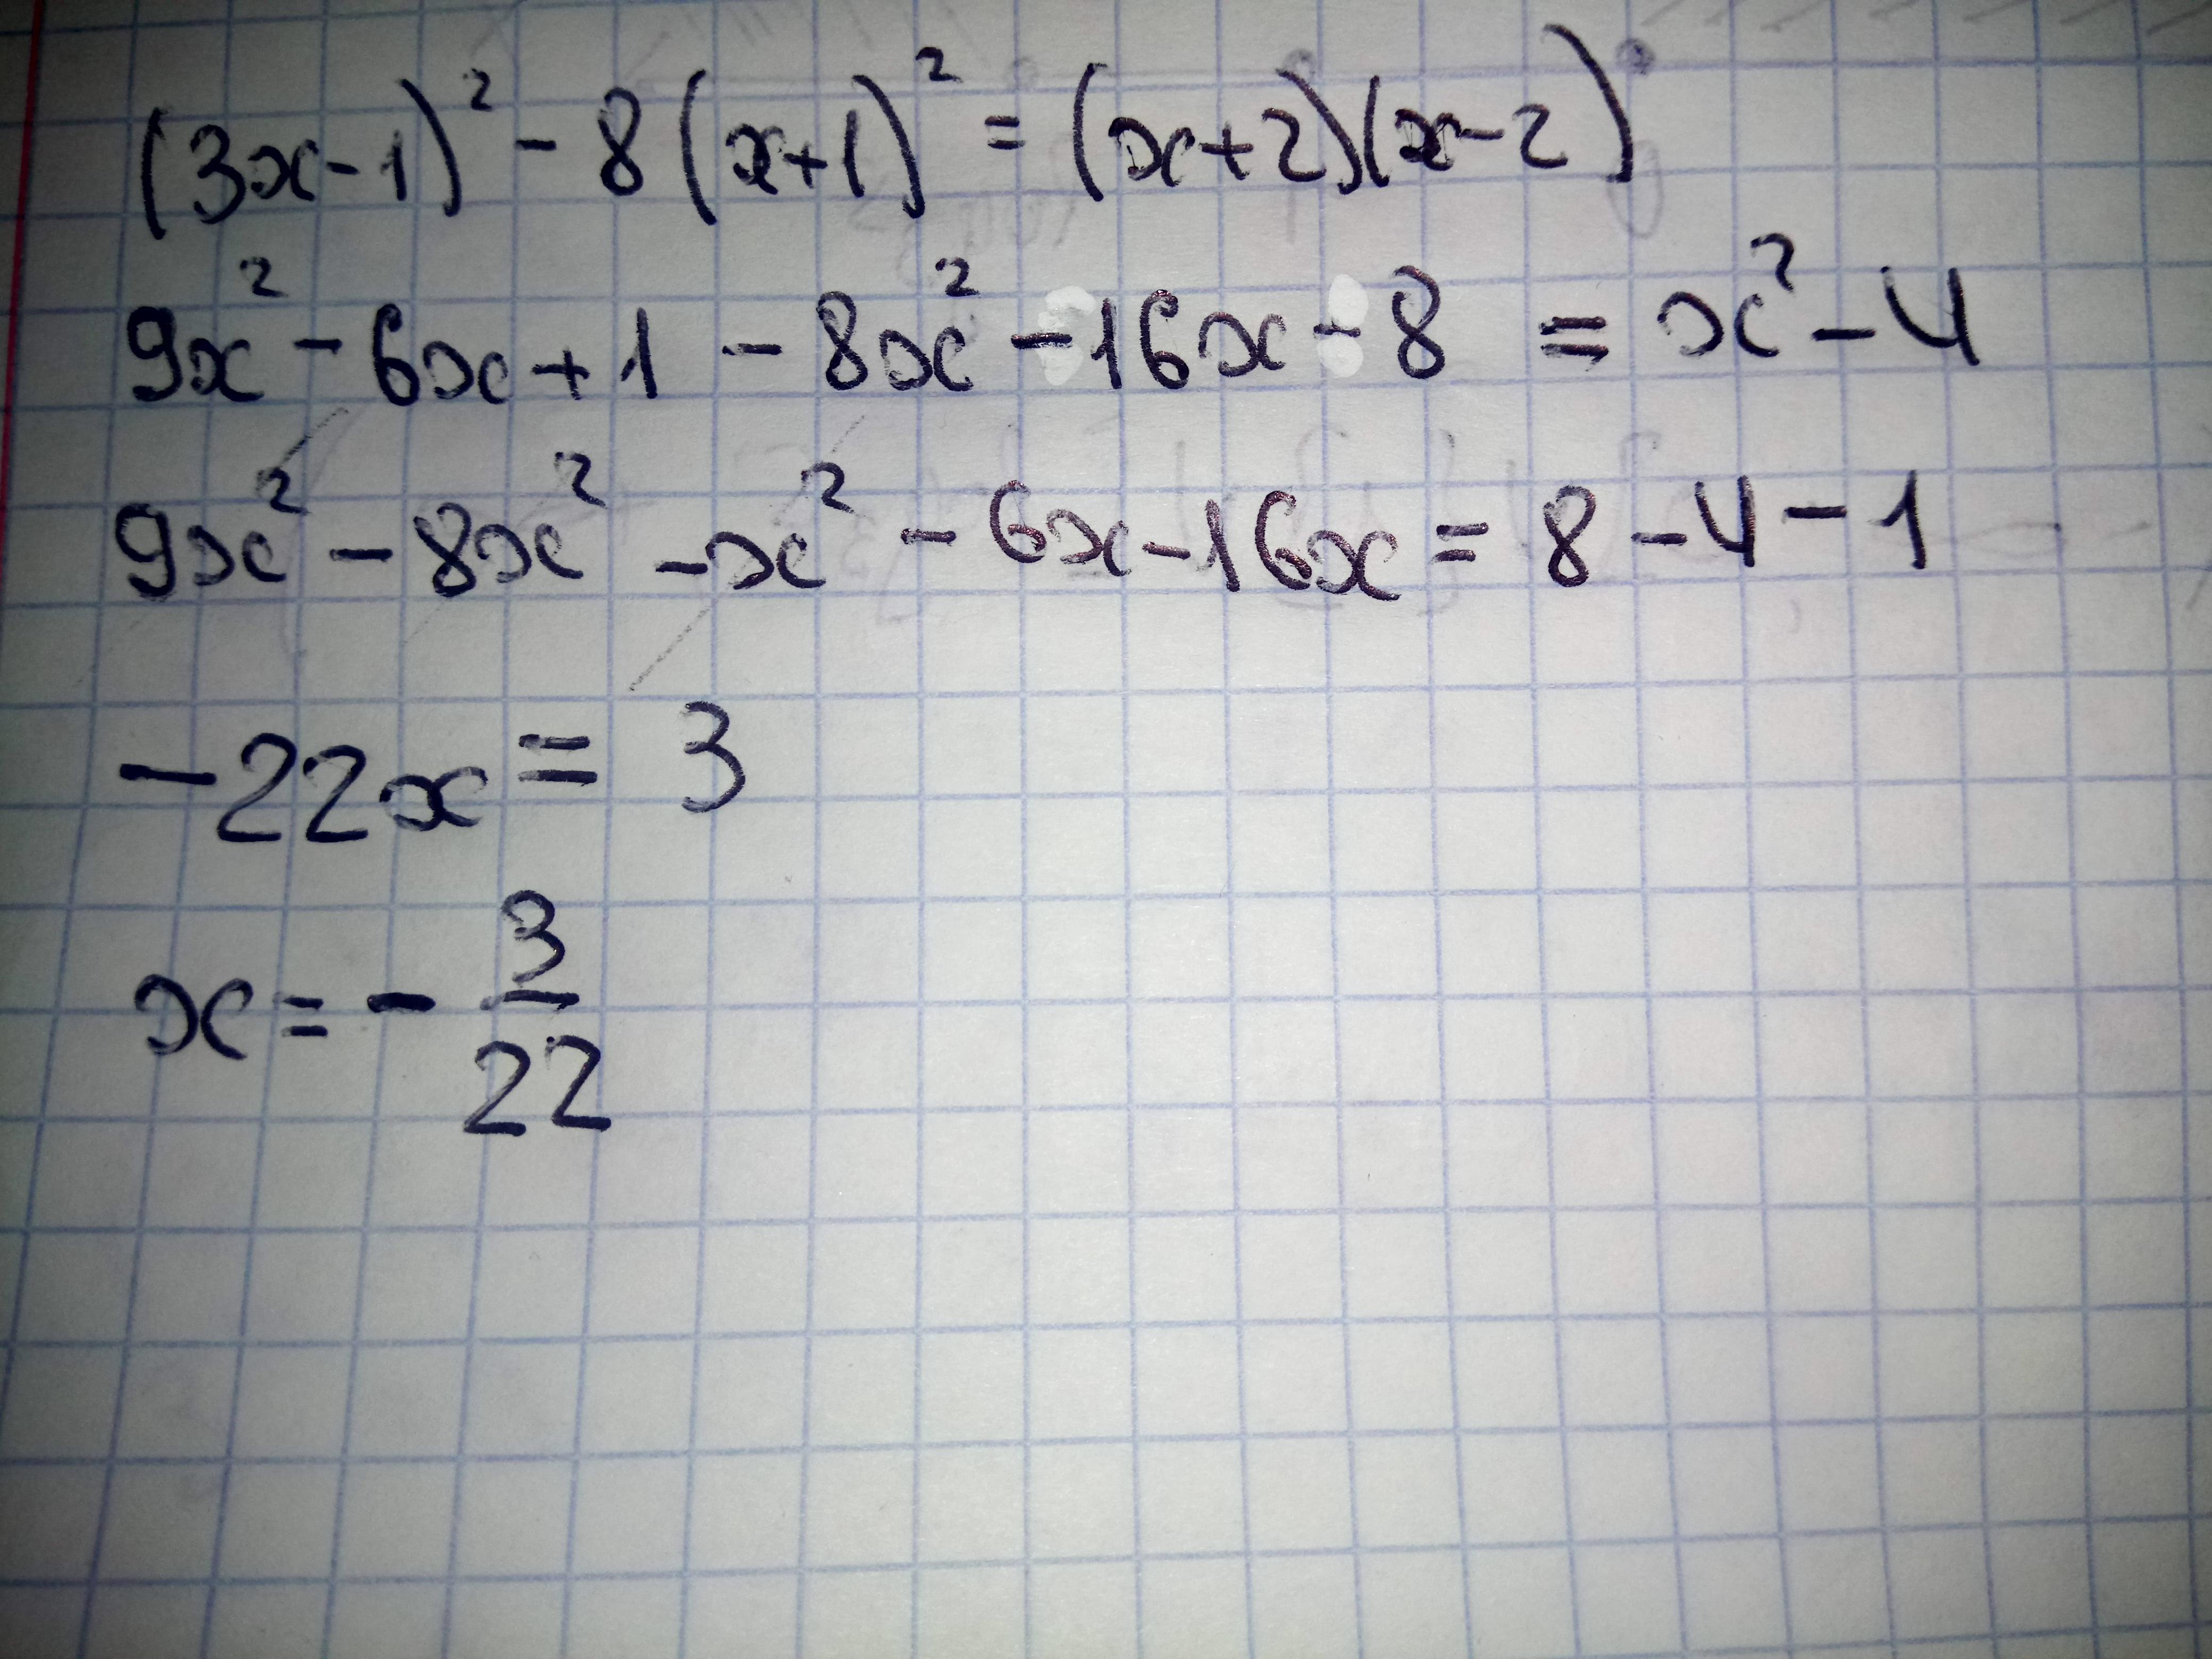 (3x-1)² - 8(x+1)² = (x+2)(x-2)
9x² - 6x + 1 - 8x² - 16x - 8 = x² - 4
9x² - 8x² - x² - 6x - 16x = 8 - 4 - 1
-22x = 3
x = - 3/22